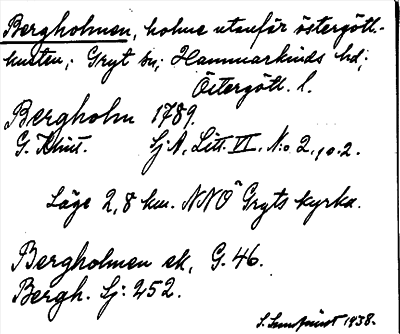 Bergholmen, holme utanför östergötl.-
kusten; Gryt sn; Hammarkinds hd;
Östergötl. l.
Bergholm 1789.
G. Klint. Sj. A. Litt. VI. N:o 2, p. 2.
Läge 2,8 km. NNO Gryts kyrka.
Bergholmen ek, G. 46.
Bergh. Sj: 252.
1938.